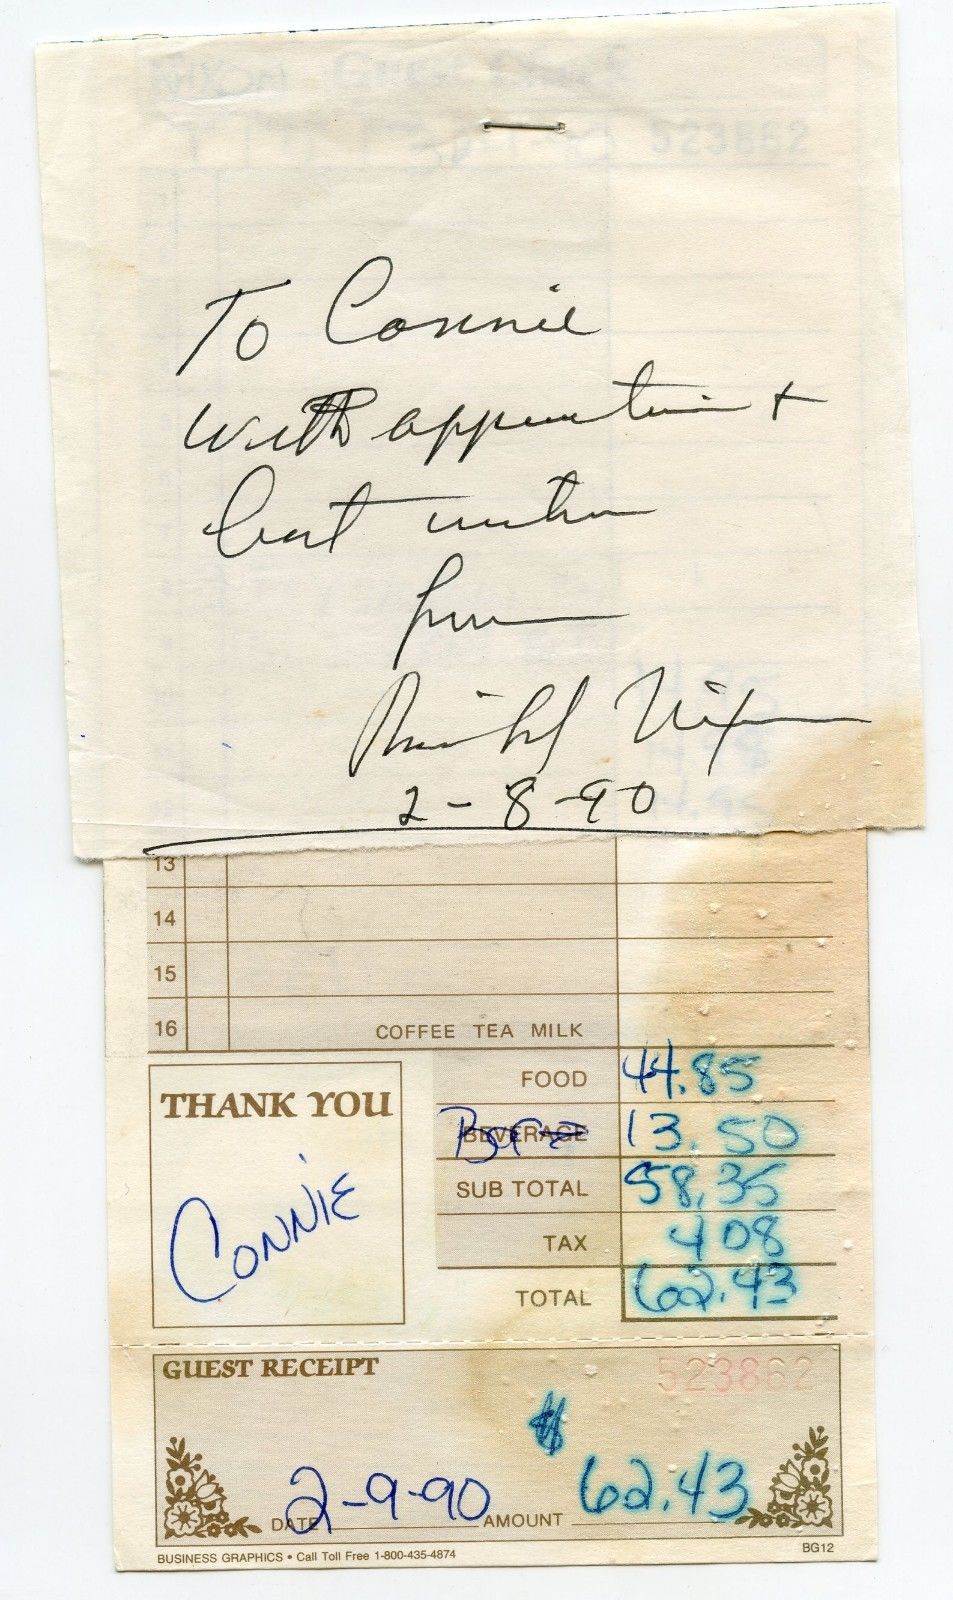 NIXON Guest Check
523862
To Connie
with appreciation +
best wishes
from
Richard Nixon
2-8-90
13
14
15
16 COFFEE TEA MILK
THANK YOU
Connie
FOOD 44.85
BEVERAGE 13.50
SUB TOTAL 58.35
TAX 4 08
TOTAL 62.43
GUEST RECEIPT 523862
DATE 2-9-90 AMOUNT $ 62.43
BUSINESS GRAPHICS • Call Toll Free 1-800-435-4874 BG12